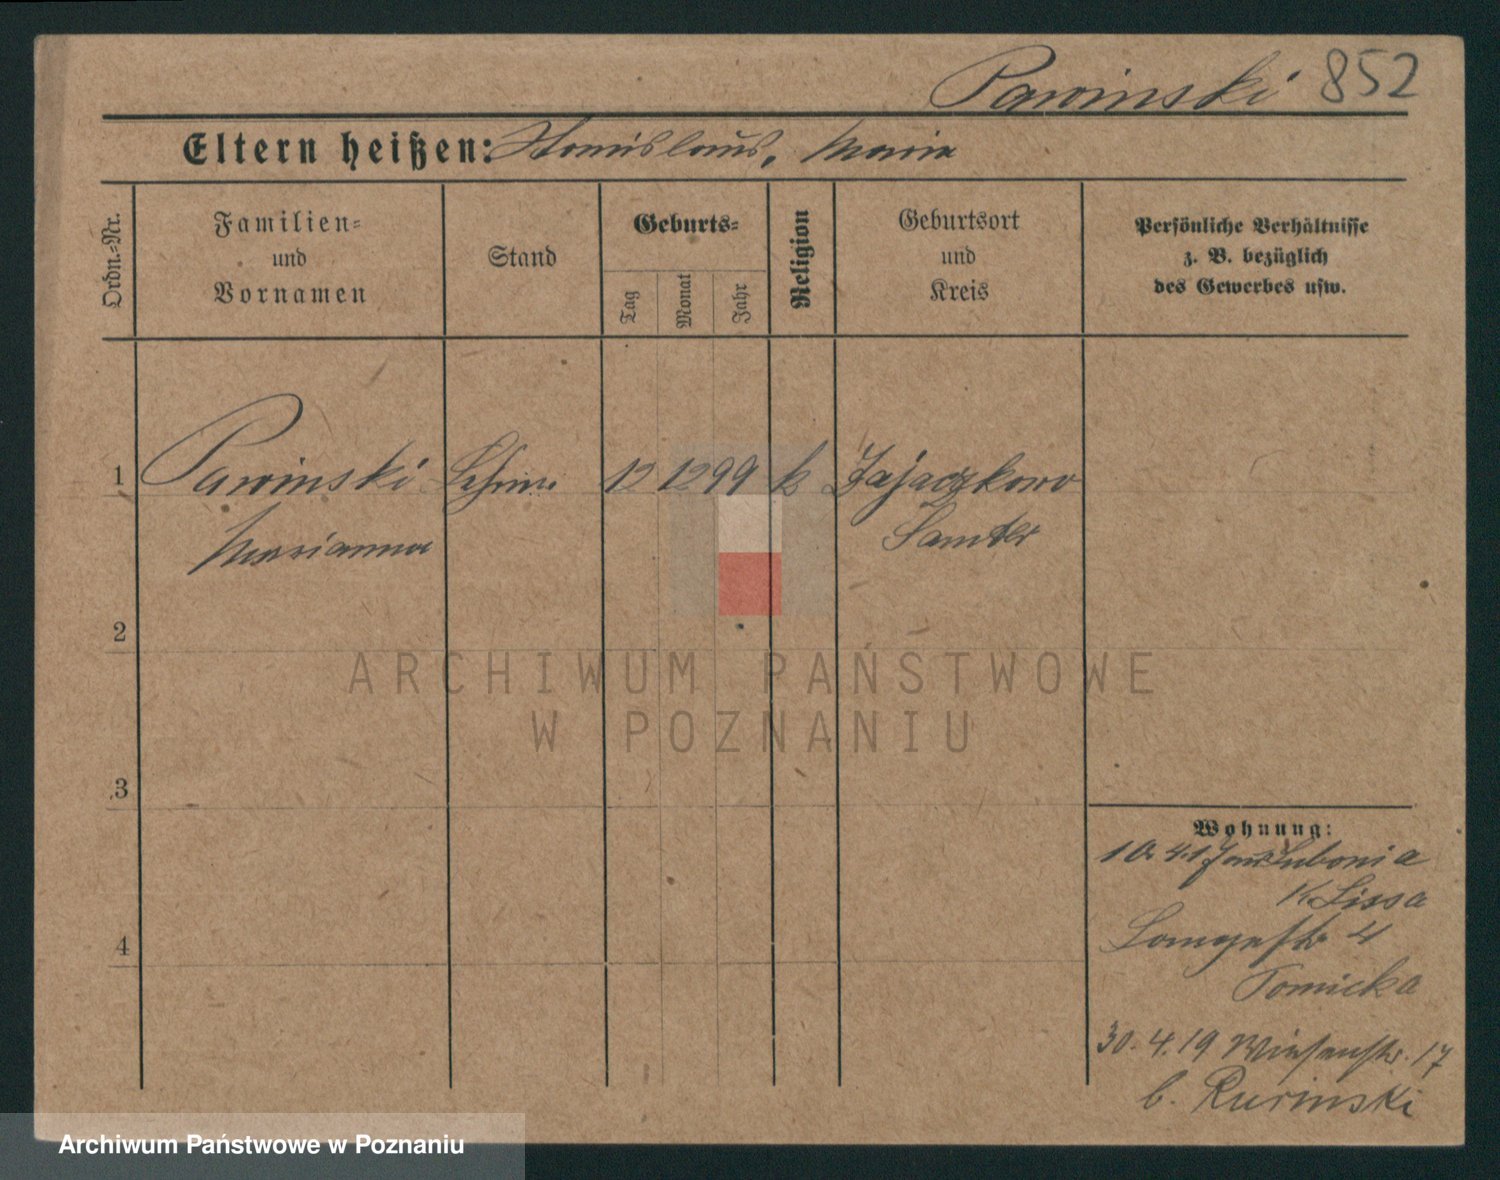 Pawinski 852
Eltern heißen: Stanislaus, Maria
Ordn.-Nr.
Familien-
und
Vornamen
Stand
Geburts-
Tag
Monat
Jahr
Religion
Geburtsort
und
Kreis
Persönliche Verhältnisse
z. B. bezüglich
des Gewerbes usw.
1 Pawinski 12 12 99 k Zajaczkowo
Marianna Samter
2
ARCHIWUM PAŃSTWOWE
W POZNANIU
3
Wohnung:
Lubonia
K. Lissa
4
Langestr 4
Tomicka
30. 4. 19 Wiesenstr. 17
b. Rurinski
Archiwum Państwowe w Poznaniu